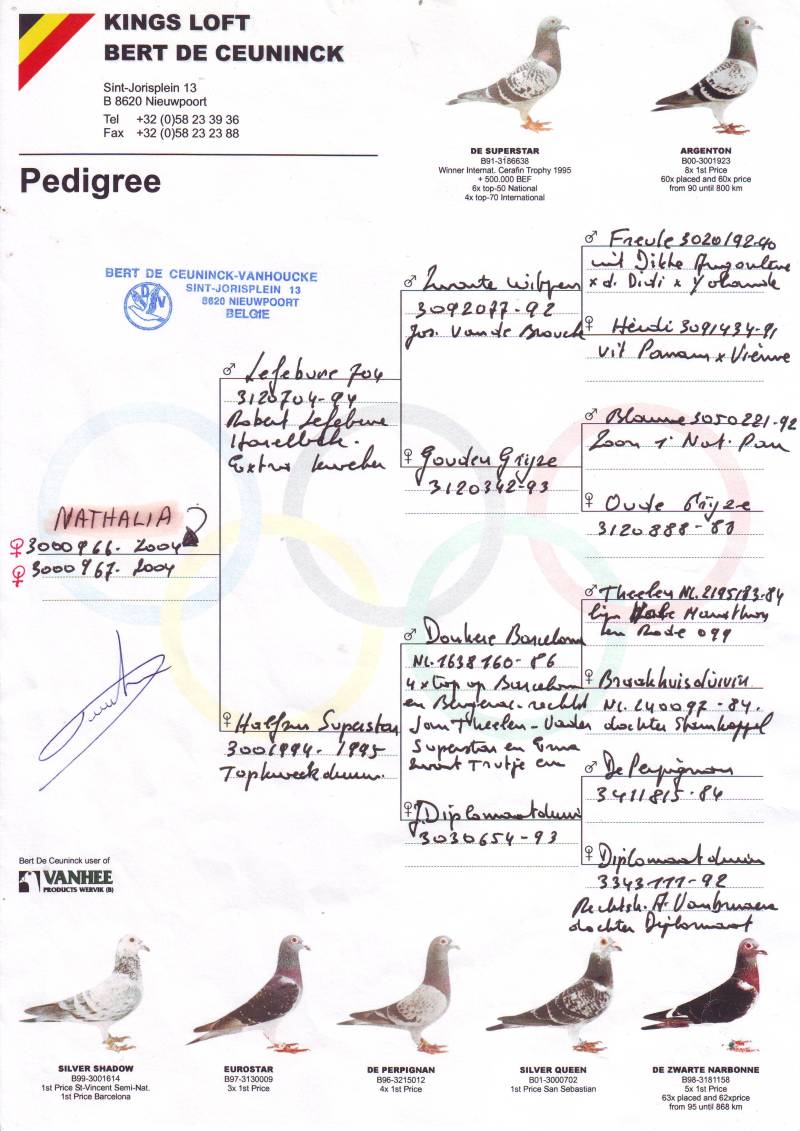 KINGS LOFT
BERT DE CEUNINCK
Sint-Jorisplein 13
B 8620 Nieuwpoort
Tel +32 (0)58 23 39 36
Fax +32 (0)58 23 23 88
Pedigree
DE SUPERSTAR
B91-3186638
Winner Internat. Cerafin Trophy 1995
+ 500.000 BEF
6x top-50 National
4x top-70 International
ARGENTON
B00-3001923
8x 1st Price
60x placed and 60x price
from 90 until 800 km
BERT DE CEUNINCK-VANHOUCKE
SINT-JORISPLEIN 13
8620 NIEUWPOORT
BELGIE
DSV
NATHALIA
♀ 3000966-2004
♀ 3000967-2004
♂ Lefebvre 704
3120704-94
Robert Lefebvre
Extra kweker
♀ Halfzus Superstar
3001994-1995
Topkweekduivin
♂ Zwarte
3092077-92
Jos. Van de
♀ Gouden Grijze
3120342-93
♂ Donkere Barcelona
NL.1638160-86
4x top op Barcelona
en Bergerac. rechtst
Jan Theelen - Vader
Superstar en
zwart Trutje en
♀ J. Diplomaatduivin
3030654-93
♂ Freule 3020192-90
uit Dikke Angoulème
x d. Didi x Yolande
♀ Heidi 3091434-91
uit Panam x Vienne
♂ Blauwe 3050221-92
Zoon 1° Nat. Pau
♀ Oude Grijze
3120888-88
♂ Theelen NL.2195183-84
lijn
en Rode 099
♀ Braakhuisduivin
NL.240097-84.
dochter Stamkoppel
♂ De Perpignan
3411815-84
♀ Diplomaatduivin
3343111-92
Rechtstr. A. Vanbruaene
dochter Diplomaat
Bert De Ceuninck user of
VANHEE
PRODUCTS WERVIK (B)
SILVER SHADOW
B99-3001614
1st Price St-Vincent Semi-Nat.
1st Price Barcelona
EUROSTAR
B97-3130009
3x 1st Price
DE PERPIGNAN
B96-3215012
4x 1st Price
SILVER QUEEN
B01-3000702
1st Price San Sebastian
DE ZWARTE NARBONNE
B98-3181158
5x 1st Price
63x placed and 62xprice
from 95 until 868 km